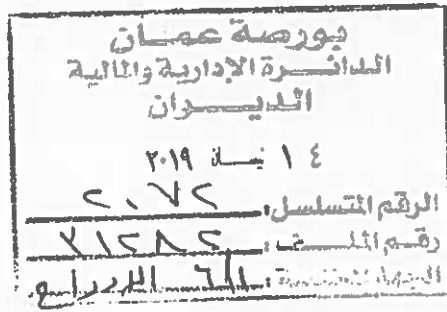 بورصة عمان
الدائرة الإدارية والمالية
الديوان
١٤ نيسان ٢٠١٩
الرقم المتسلسل: ٢٠٧٢
رقم الملف: ٣١٢٨٢
الجهة المختصة: